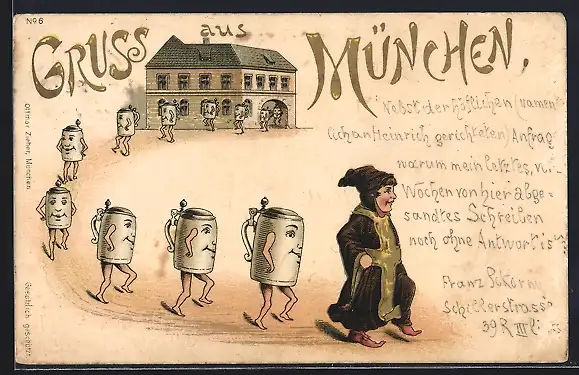 No 6
GRUSS aus MÜNCHEN.
Nebst der höflichen (namen
lich an Heinrich gerichteten) Anfrag
warum mein letztes, vor
Wochen von hier abge-
sandtes Schreiben
noch ohne Antwort is
Franz
Schillerstrass
39 R III
Ottmar Zieher, München.
Gesetzlich geschützt.